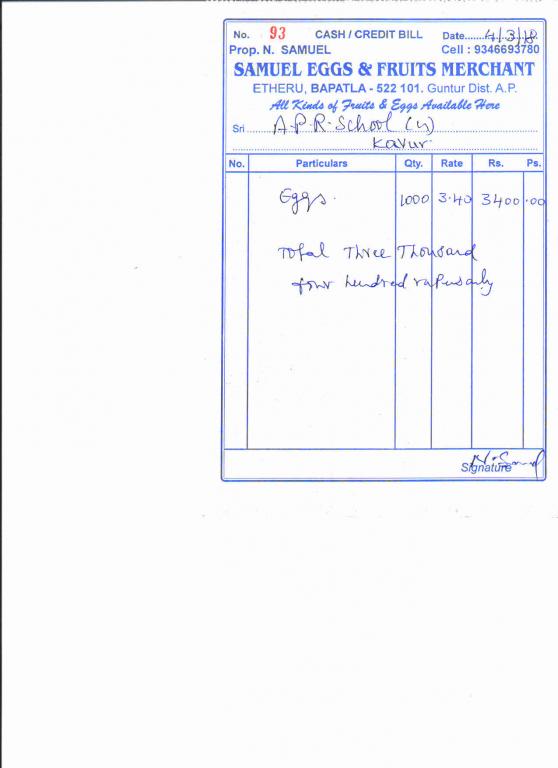 No. 93 CASH / CREDIT BILL Date......4/3/18
Prop. N. SAMUEL Cell : 9346693780
SAMUEL EGGS & FRUITS MERCHANT
ETHERU, BAPATLA - 522 101. Guntur Dist. A.P.
All Kinds of Fruits & Eggs Available Here
Sri A.P.R. School (4)
Kavur
No. Particulars Qty. Rate Rs. Ps.
Eggs. 1000 3.40 3400.00
Total Three Thousand
four hundred rupees only
Signature